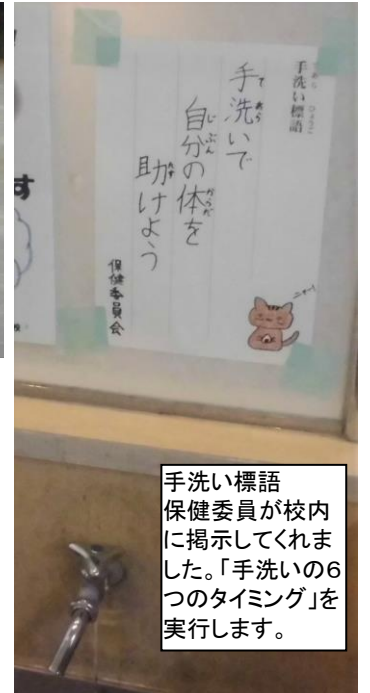 手洗い標語
手洗いで
自分の体を
助けよう
保健委員会
ニャー!
す
手洗い標語
保健委員が校内
に掲示してくれま
した。「手洗いの6
つのタイミング」を
実行します。